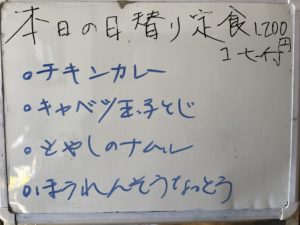 本日の日替り定食1,200円
コーヒー付
・チキンカレー
・キャベツ玉子とじ
・もやしのナムル
・ほうれんそうなっとう